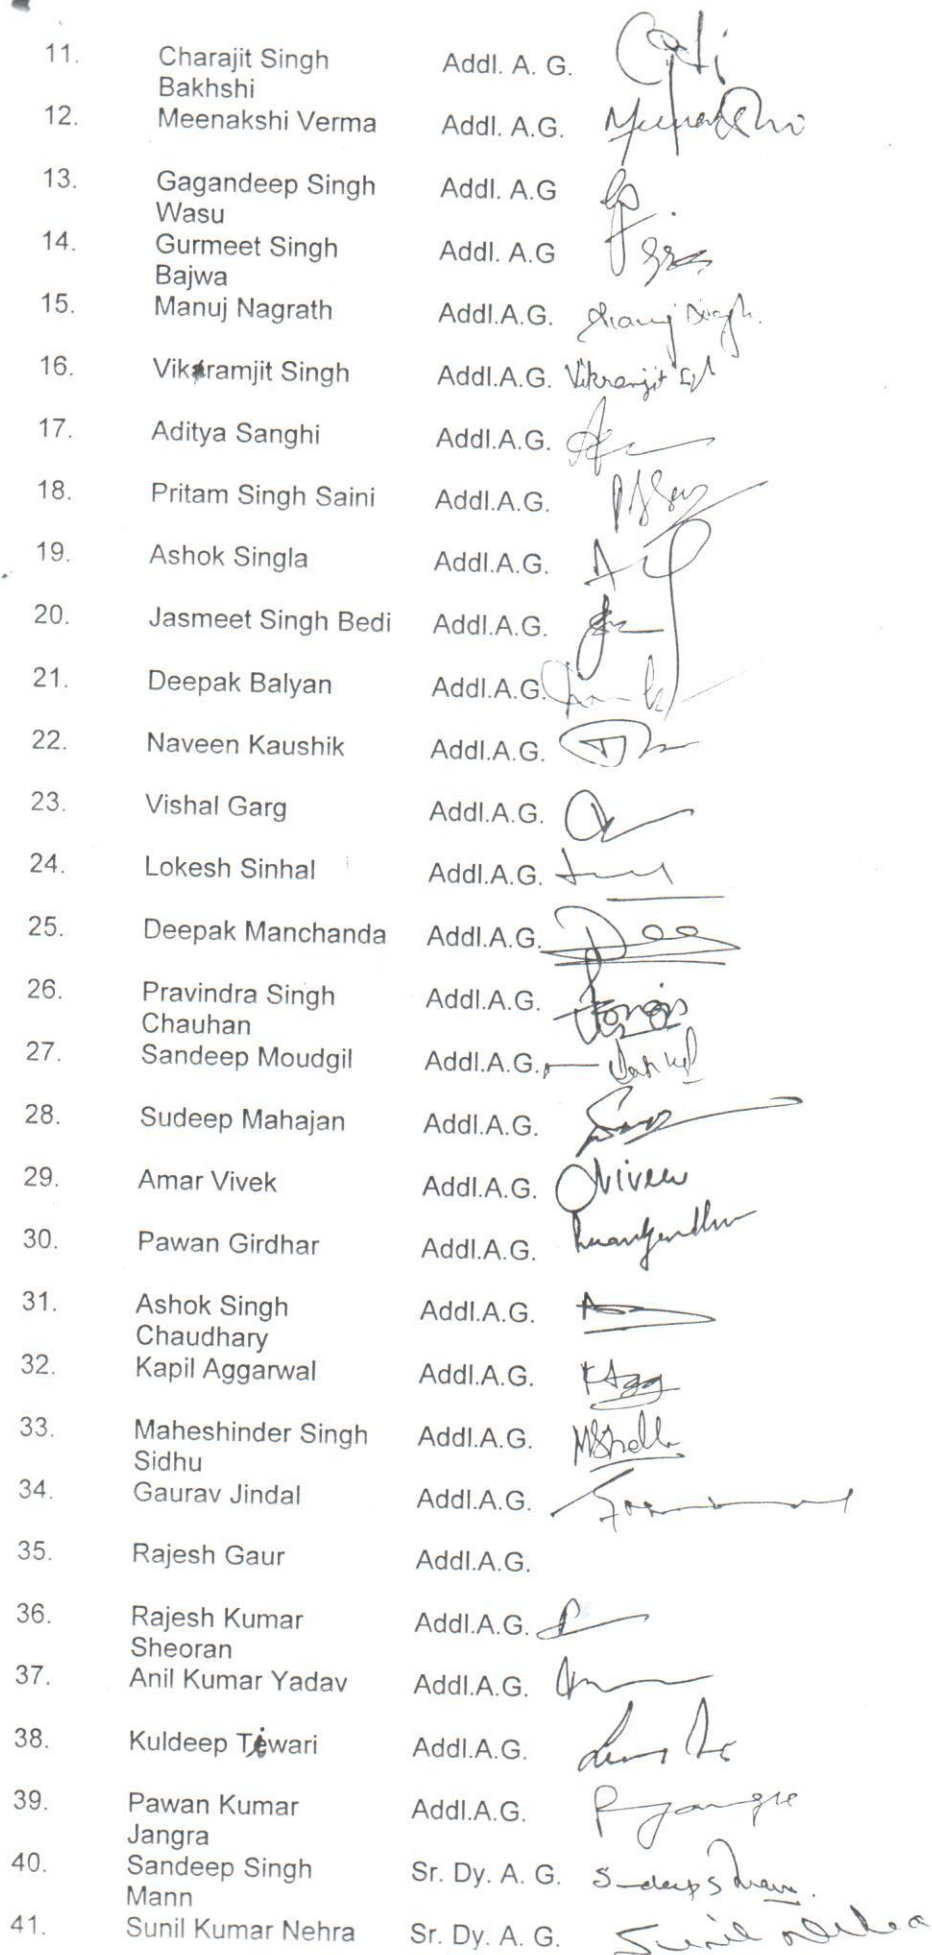 11. Charajit Singh Addl. A. G.
Bakhshi
12. Meenakshi Verma Addl. A.G.
13. Gagandeep Singh Addl. A.G
Wasu
14. Gurmeet Singh Addl. A.G
Bajwa
15. Manuj Nagrath Addl.A.G.
16. Vikramjit Singh Addl.A.G. Vikramjit
17. Aditya Sanghi Addl.A.G.
18. Pritam Singh Saini Addl.A.G.
19. Ashok Singla Addl.A.G.
20. Jasmeet Singh Bedi Addl.A.G.
21. Deepak Balyan Addl.A.G.
22. Naveen Kaushik Addl.A.G.
23. Vishal Garg Addl.A.G.
24. Lokesh Sinhal Addl.A.G.
25. Deepak Manchanda Addl.A.G.
26. Pravindra Singh Addl.A.G.
Chauhan
27. Sandeep Moudgil Addl.A.G.
28. Sudeep Mahajan Addl.A.G.
29. Amar Vivek Addl.A.G. Vivek
30. Pawan Girdhar Addl.A.G.
31. Ashok Singh Addl.A.G.
Chaudhary
32. Kapil Aggarwal Addl.A.G.
33. Maheshinder Singh Addl.A.G.
Sidhu
34. Gaurav Jindal Addl.A.G.
35. Rajesh Gaur Addl.A.G.
36. Rajesh Kumar Addl.A.G.
Sheoran
37. Anil Kumar Yadav Addl.A.G.
38. Kuldeep Tiwari Addl.A.G.
39. Pawan Kumar Addl.A.G.
Jangra
40. Sandeep Singh Sr. Dy. A. G.
Mann
41. Sunil Kumar Nehra Sr. Dy. A. G. Sunil Nehra